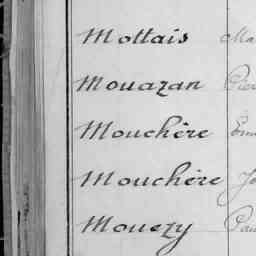 Mottais Ma
Mouazan Pier
Mouchère Em
Mouchère Jo
Mouezy Pau